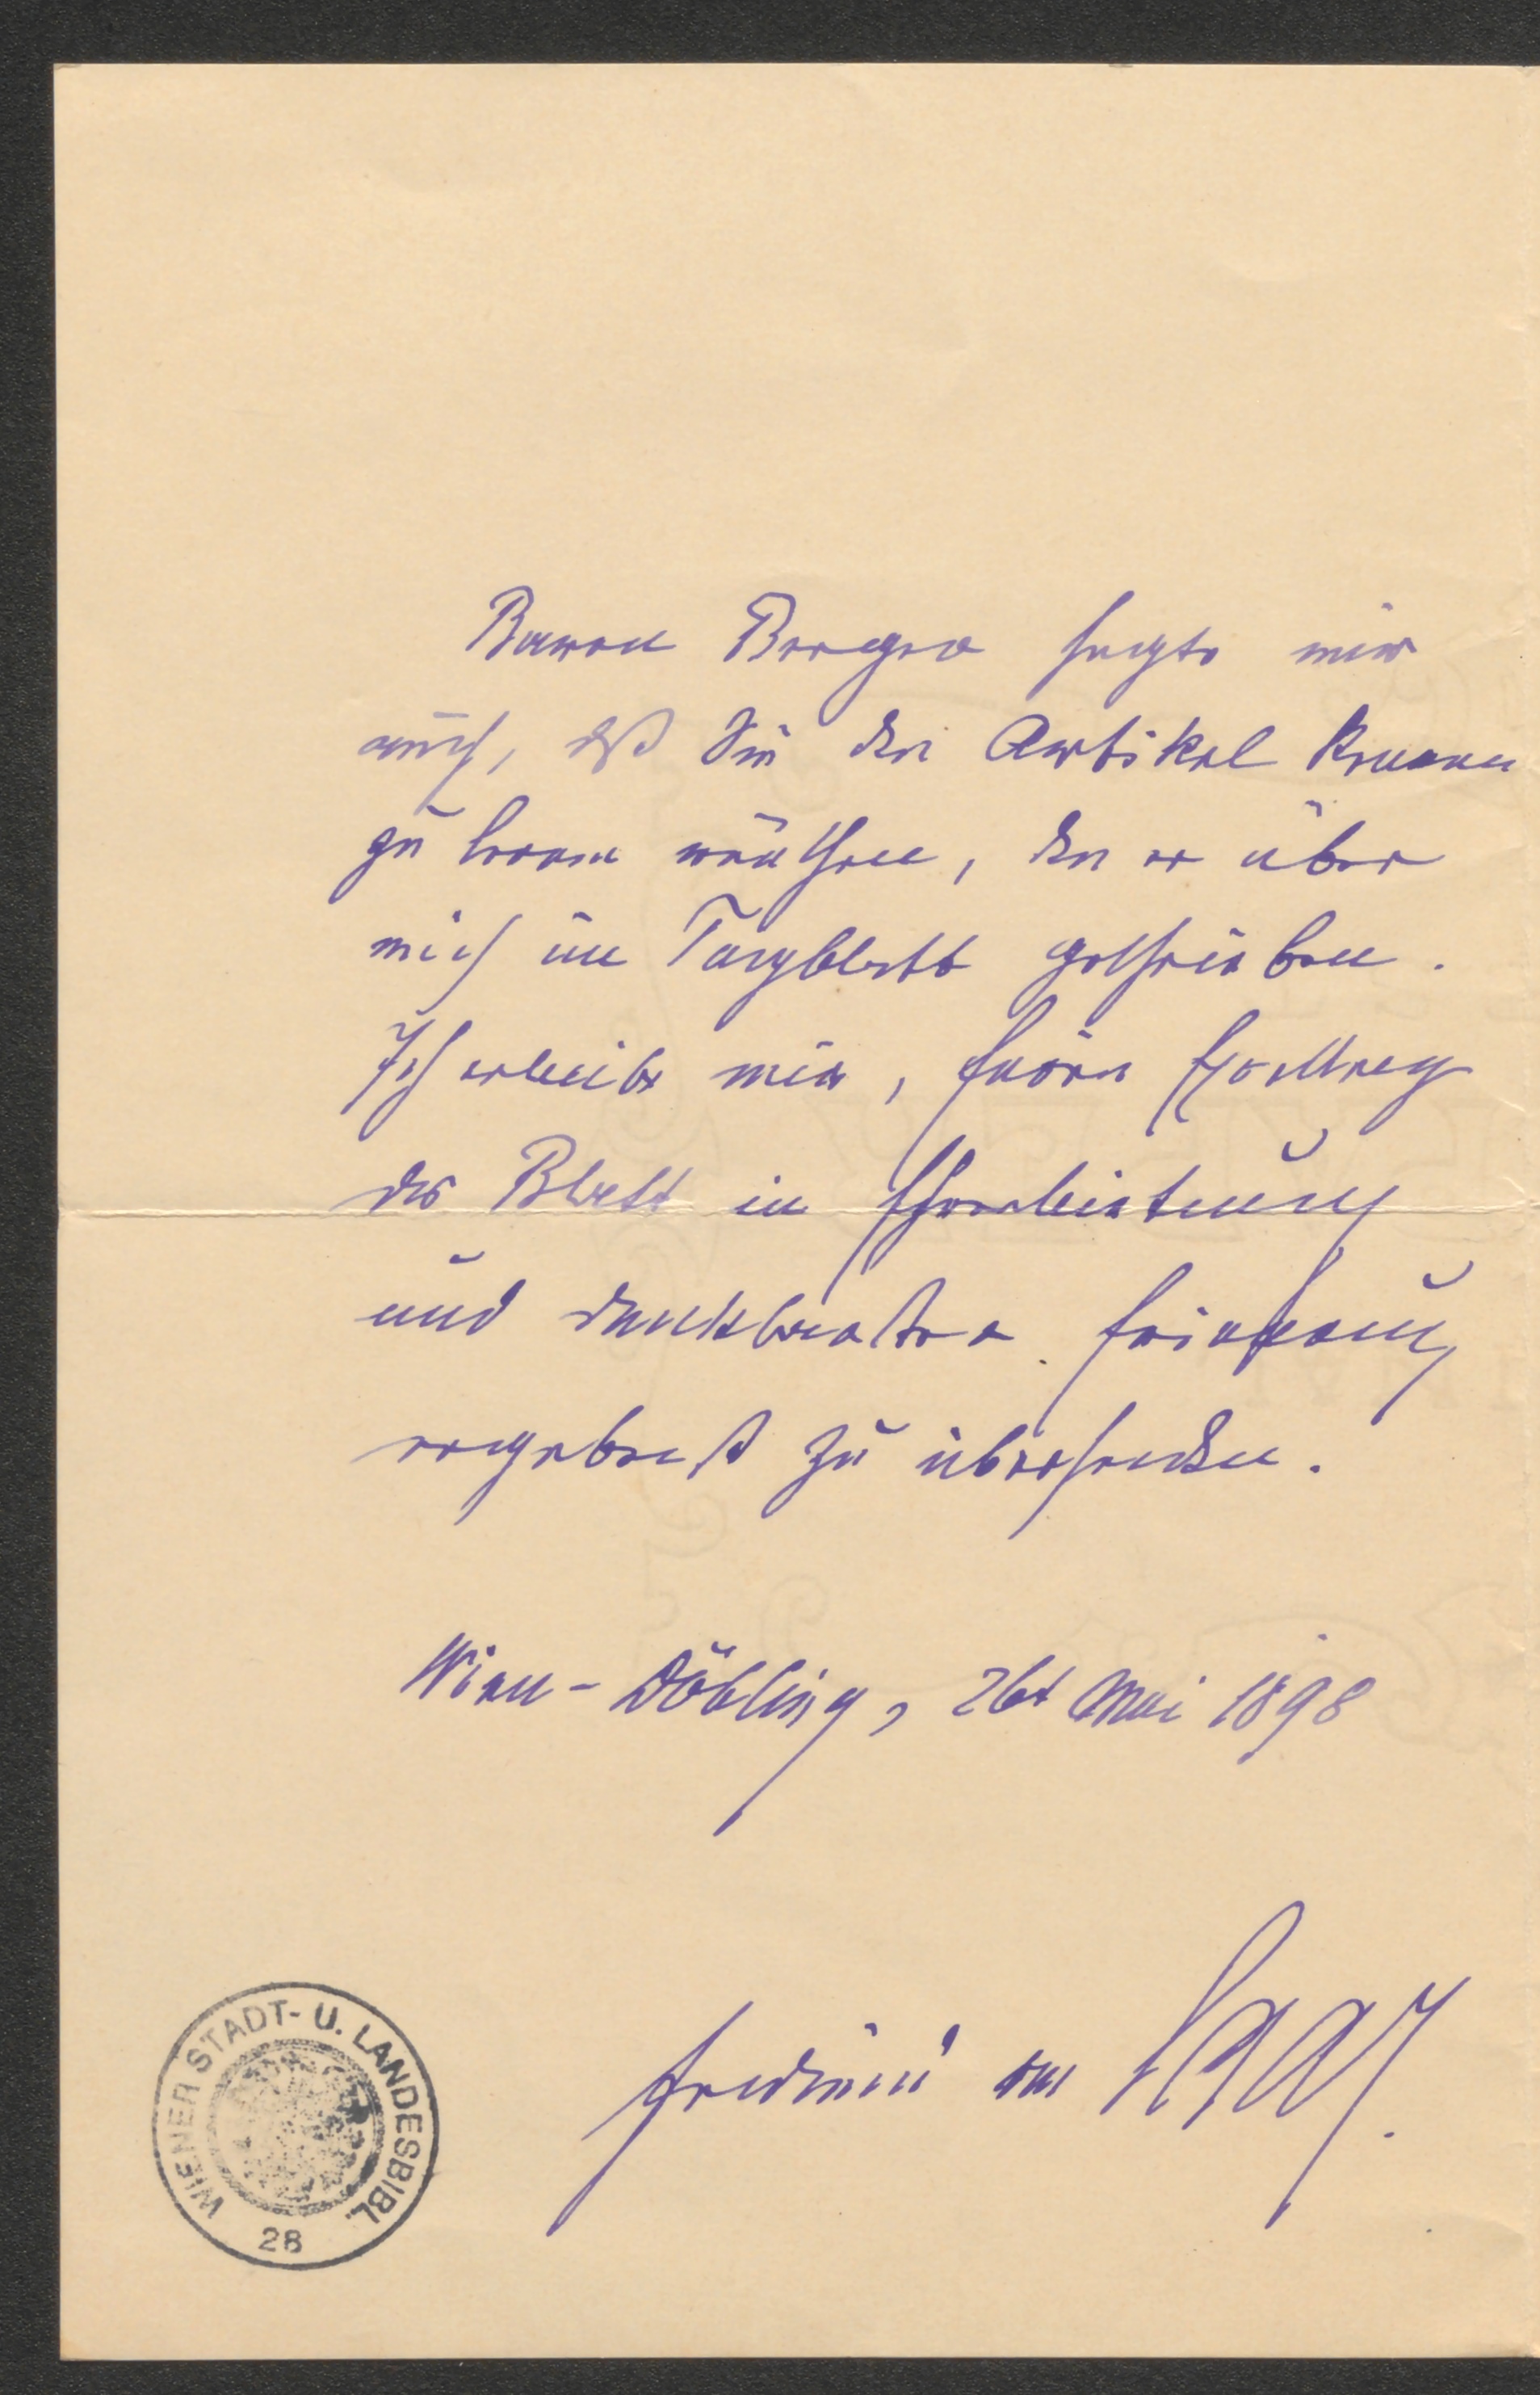 Baron Berger sagte mir
auch, daß Sie den Artikel kennen
zu lernen wünschen, den er über
mich im Tagblatt geschrieben.
Ich erlaube mir, Euer Hochg
das Blatt in Ehrerbietung
und dankbarster Ergebung
ergebenst zu übersenden.
Wien-Döbling, 26t Mai 1898
Ferdinand von Saar.
WIENER STADT- U. LANDESBIBL.
28